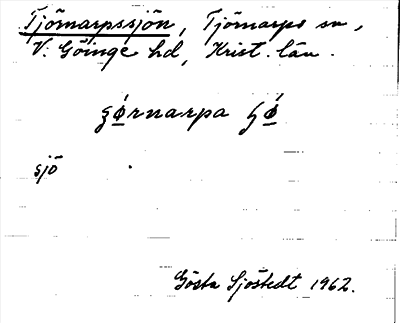 Tjörnarpssjön, Tjörnarps sn,
V. Göinge hd, Krist. län.
ʒǿrnarpa ʒǿ
sjö
Gösta Sjöstedt 1962.